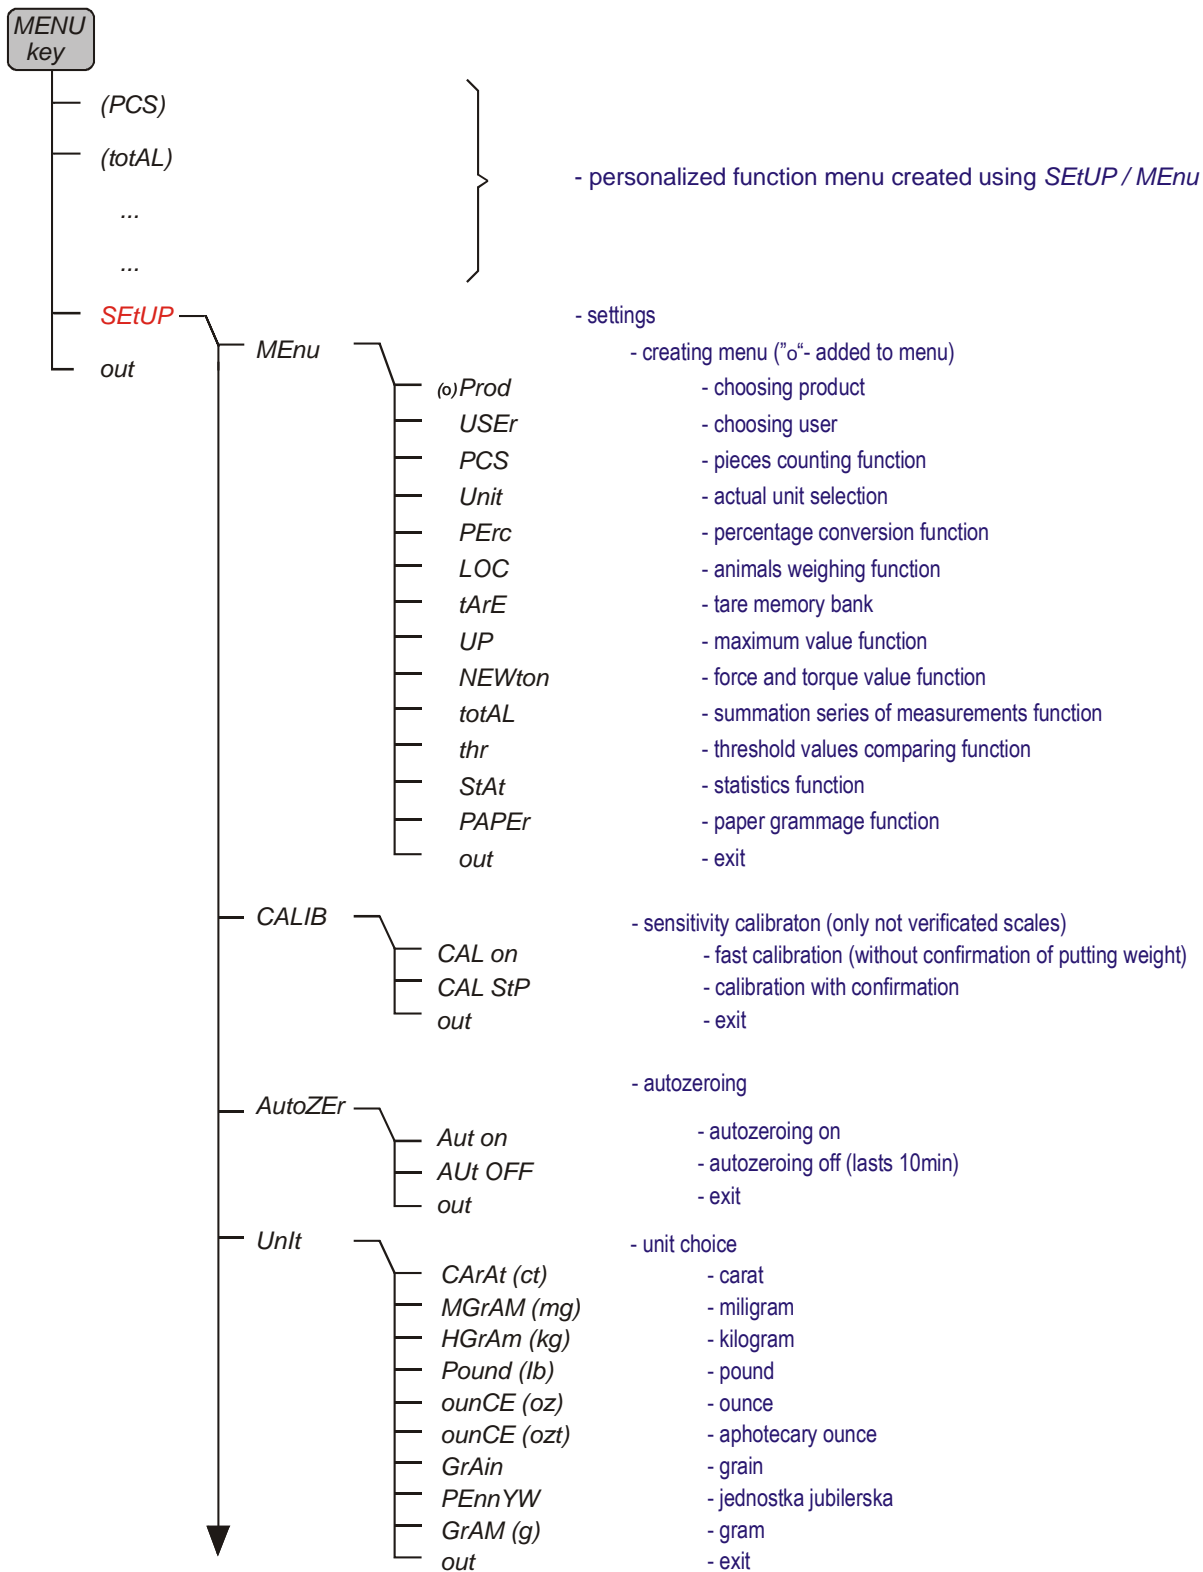 MENU
key
(PCS)
(totAL)
- personalized function menu created using SEtUP / MEnu
...
...
SEtUP - settings
MEnu - creating menu ("o“- added to menu)
out
(o) Prod - choosing product
USEr - choosing user
PCS - pieces counting function
Unit - actual unit selection
PErc - percentage conversion function
LOC - animals weighing function
tArE - tare memory bank
UP - maximum value function
NEWton - force and torque value function
totAL - summation series of measurements function
thr - threshold values comparing function
StAt - statistics function
PAPEr - paper grammage function
out - exit
CALIB - sensitivity calibraton (only not verificated scales)
CAL on - fast calibration (without confirmation of putting weight)
CAL StP - calibration with confirmation
out - exit
AutoZEr - autozeroing
Aut on - autozeroing on
AUt OFF - autozeroing off (lasts 10min)
out - exit
UnIt - unit choice
CArAt (ct) - carat
MGrAM (mg) - miligram
HGrAm (kg) - kilogram
Pound (lb) - pound
ounCE (oz) - ounce
ounCE (ozt) - aphotecary ounce
GrAin - grain
PEnnYW - jednostka jubilerska
GrAM (g) - gram
out - exit